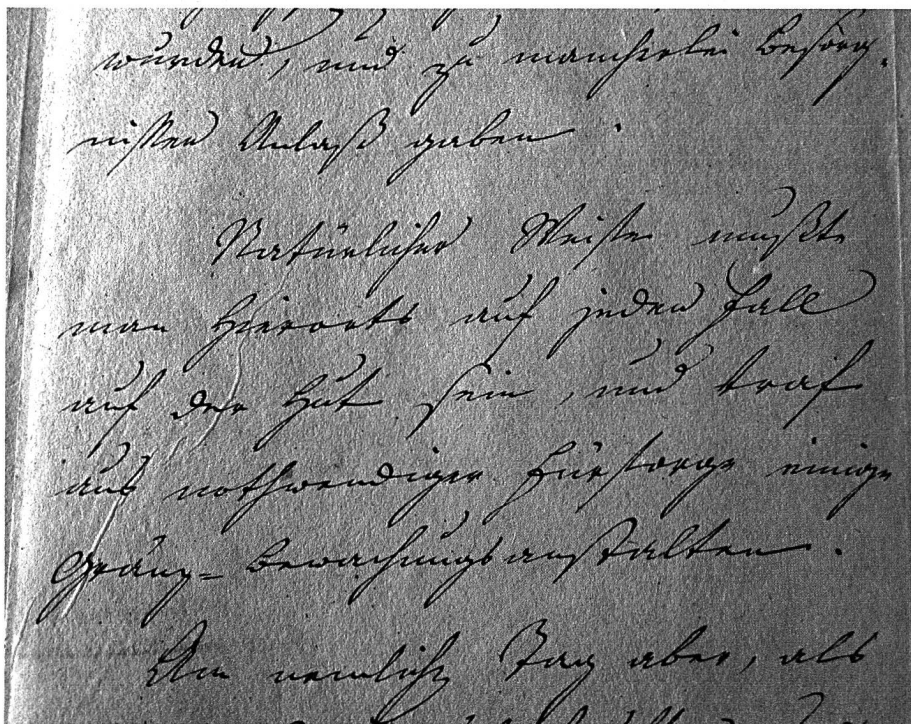 wurden, und zu mancherlei Besorg-
nissen Anlaß gaben.
Natürlicher Weise mußte
man hierorts auf jeden Fall
auf der Hut sein, und traf
aus nothwendiger Fürsorge einige
Gränz-Bewachungsanstalten.
Am nemlich Tag aber, als